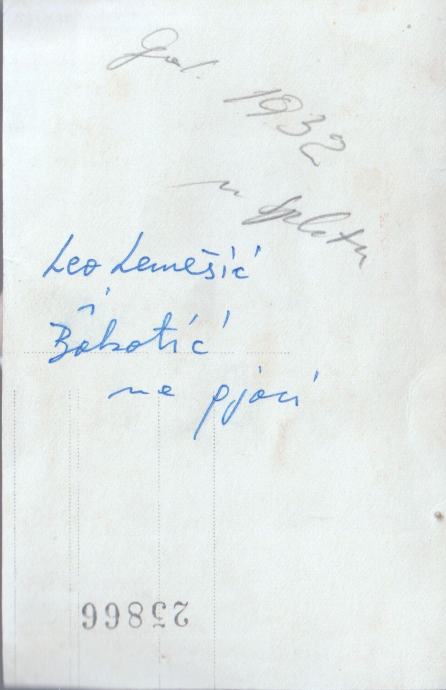 God. 1932
u Splitu
Leo Lemešić
i
Bakotić
na pjaci
25866